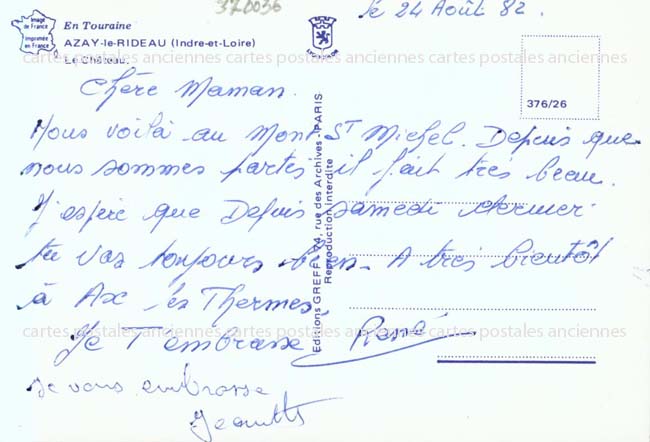 370036
le 24 Août 82.
Image de France
Imprimée en France
En Touraine
AZAY-le-RIDEAU (Indre-et-Loire)
Le Château.
LYON
cartes postales anciennes cartes postales anciennes cartes postales anciennes
376/26
Chère Maman.
Nous voilà au Mont ST Michel. Depuis que
nous sommes partis il fait très beau.
J'espère que Depuis samedi dernier
tu vas toujours bien. A très bientôt
à Ax les Thermes.
Je T'embrasse René
je vous embrasse
Editions GREFF, 74, rue des Archives - PARIS
Reproduction Interdite
cartes postales anciennes cartes postales anciennes cartes postales anciennes